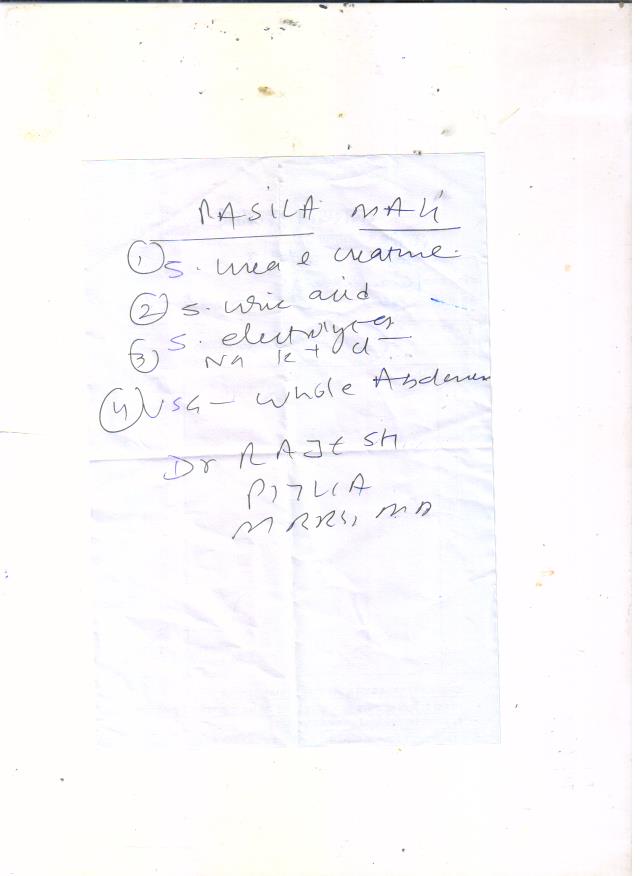 RASILA MALI
① S. urea & creatine.
② S. uric acid
③ S. electrolytes
Na K+ Cl-
④ USG - Whole Abdomen
Dr RAJESH
MBBS, MD